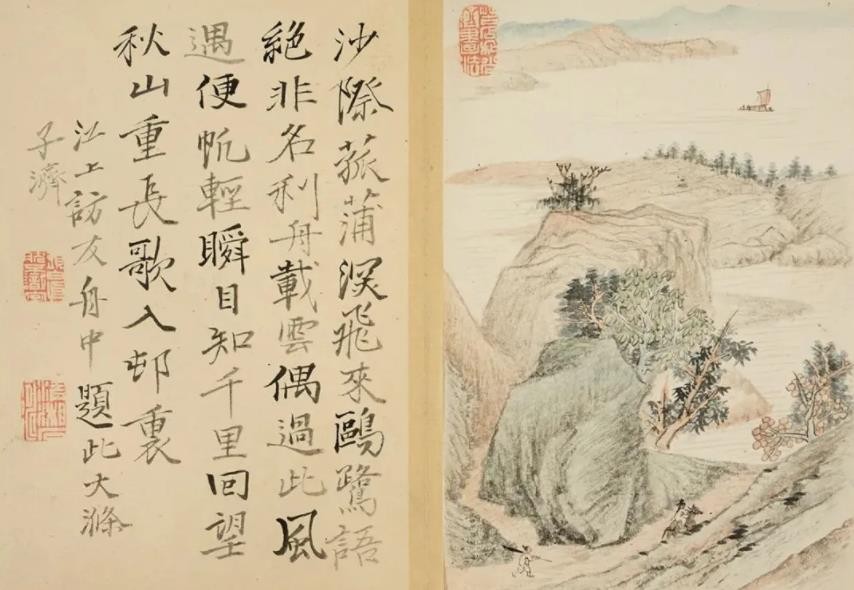 沙際菰蒲飛來鷗鷺語
絕非名利舟載雲偶過此風
遇便帆輕瞬目知千里回望
秋山重長歌入邨裏
江上訪友舟中題此大滌
子濟